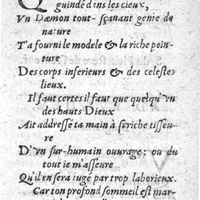 Q
guindé dãs les cieux,
Vn Dæmon tout-sçauant genie de
nature
T'a fourni le modele & la riche pein-
ture
Des corps inferieurs & des celestes
lieux.
Il faut certes il faut que quelqu'vn
des hauts Dieux
Ait addressé ta main à si riche tissu-
re
D'vn sur-humain ouurage: ou du
tout ie m'asseure
Qu'il en sera iugé par trop laborieux.
Car ton profond sommeil est mar-